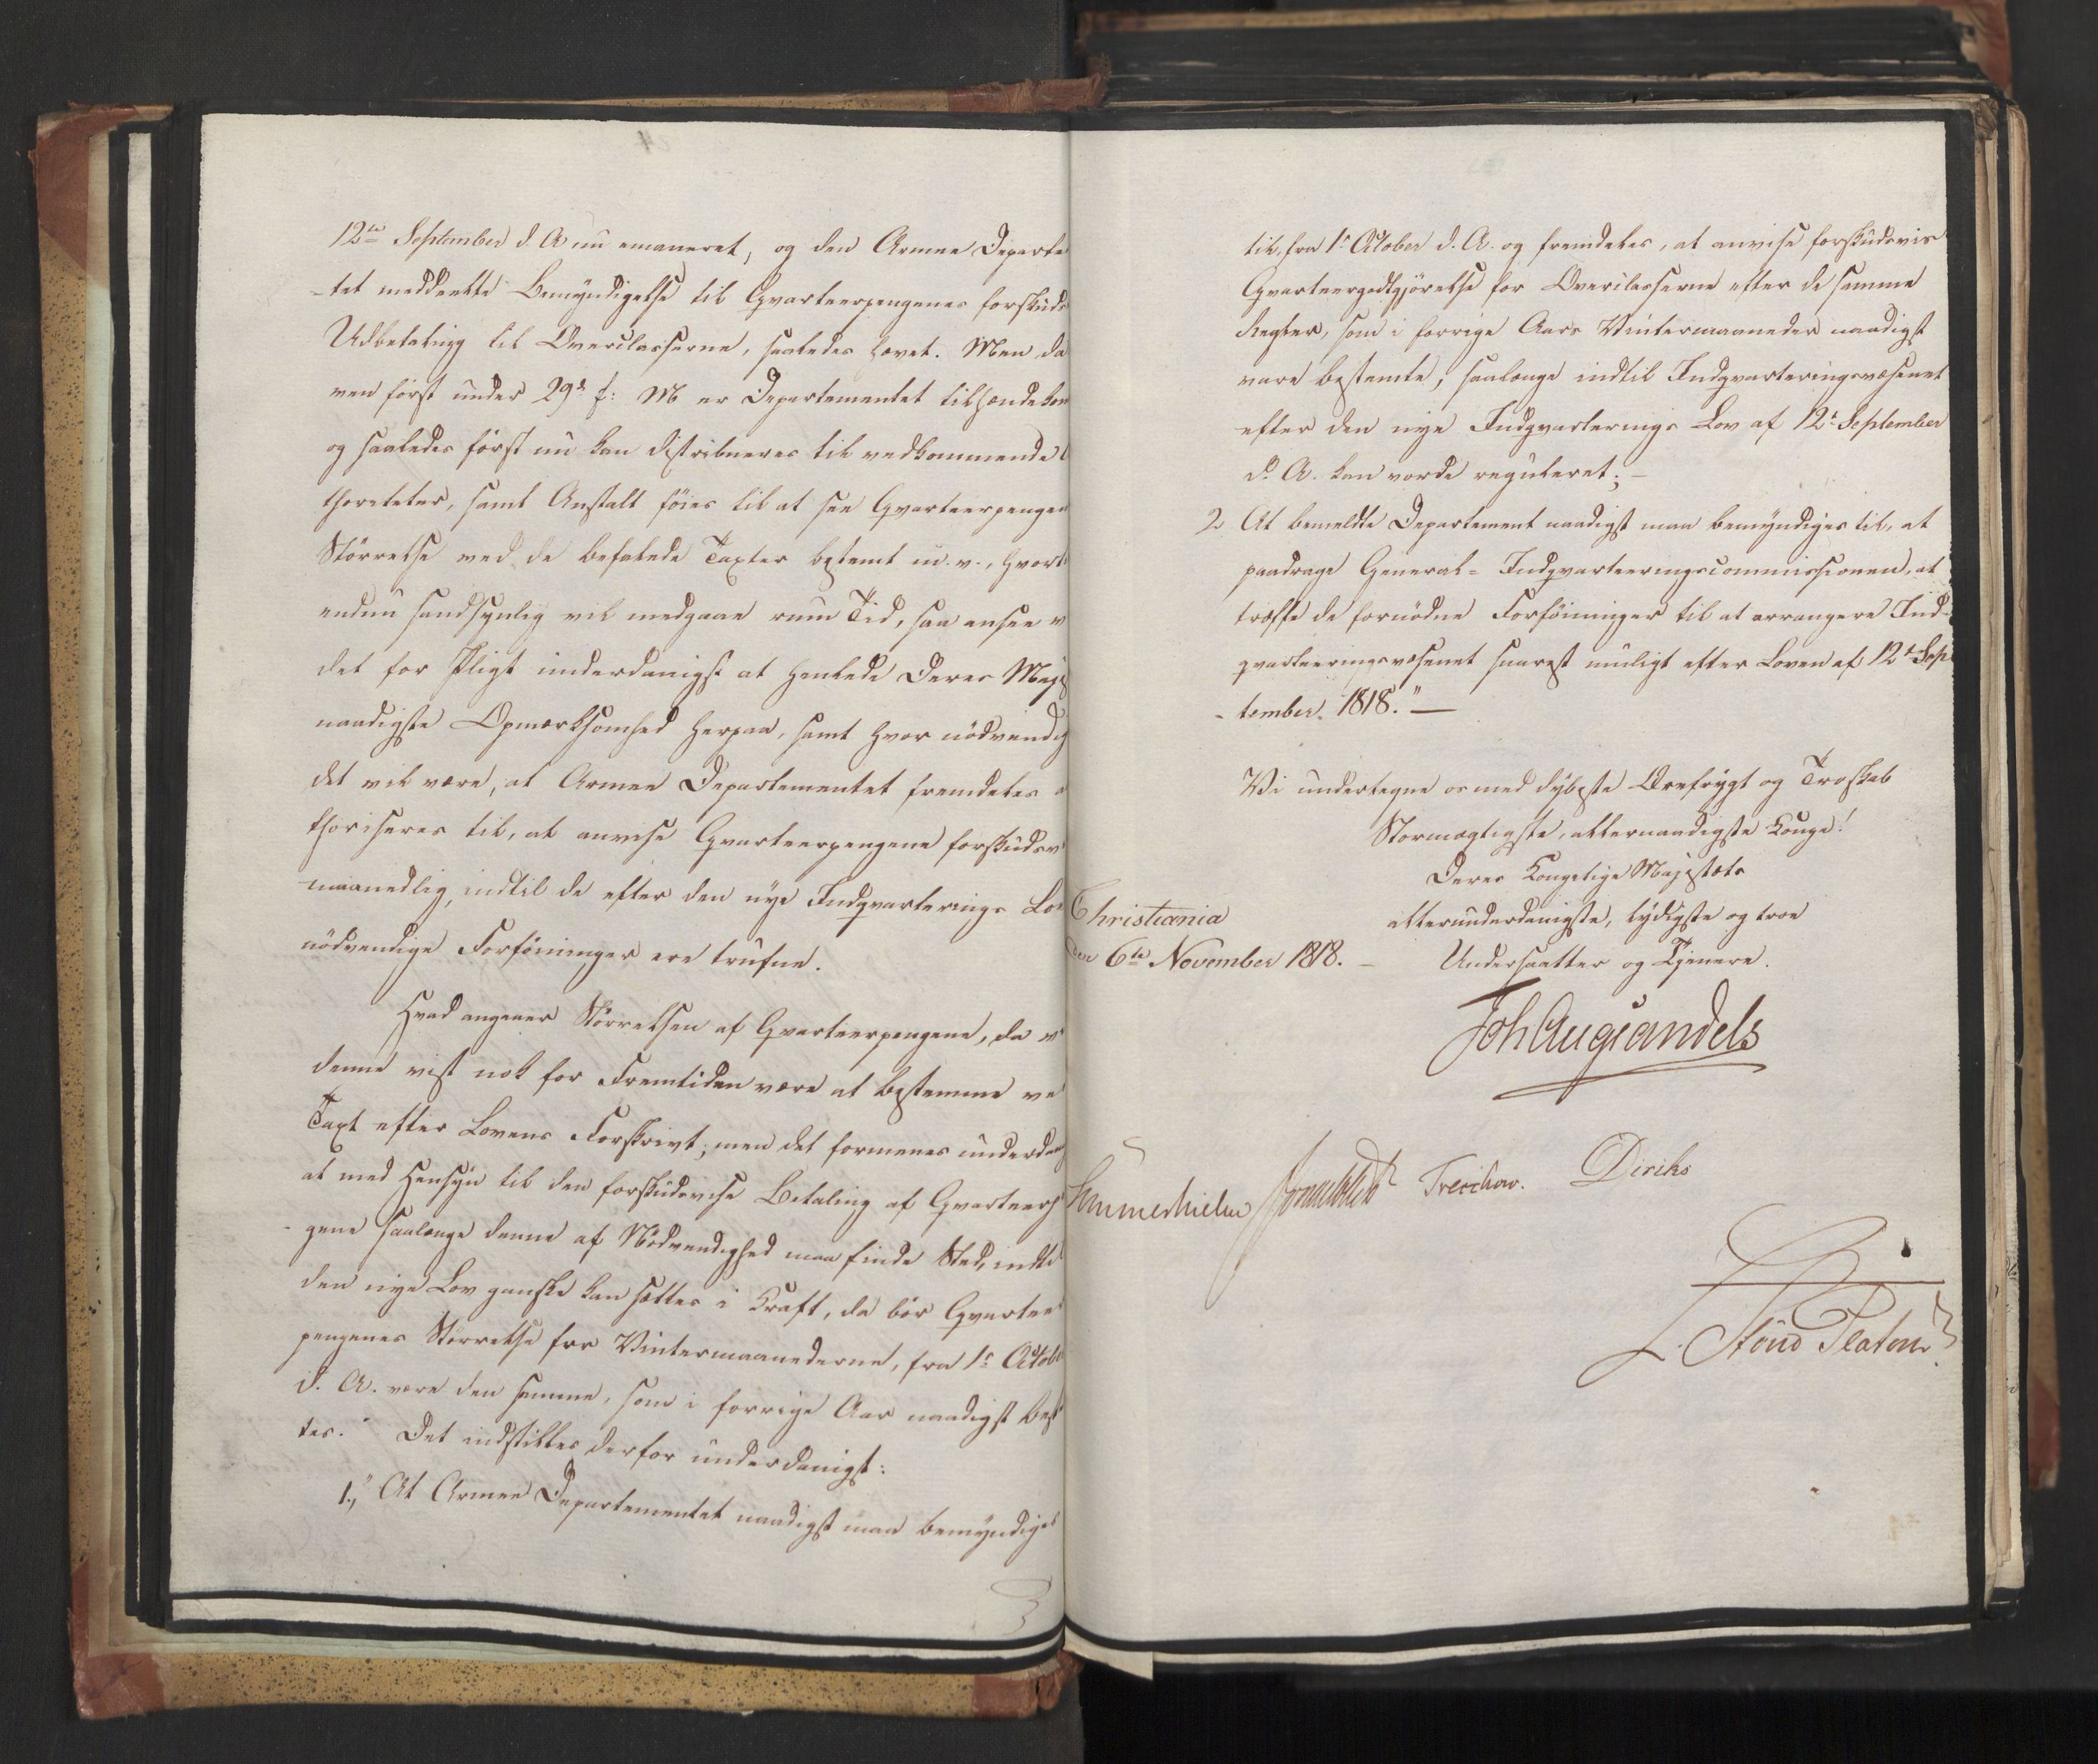 12te September d. A nu emaneret, og den Armee Departe
-tet meddeelte Bemyndigelse til Qvarteerpengenes forskuds
Udbetaling til Overclasserne, saaledes hævet. Men da
ven først under 29de f: M er Departementet tilhændekom
og saaledes først nu kan distribueres til vedkommende
thoriteter, samt Anstalt føies til at see Qvarteerpengen
Størrelse ved de befalede Taxter bestemt m. v., hvortil
endnu sandsynlig vil medgaae rum Tid, saa ansee v
det for Pligt underdanigst at henlede Deres Majes
naadigste Opmærksomhed herpaa, samt hvor nødvendig
det vil være, at Armee Departementet fremdeles a
thoriseres til, at anvise Qvarteerpengene forskudsv
maanedlig, indtil de efter den nye Indqvarterings Lov
nødvendige Forføininger ere trufne.
Hvad angaaer Størrelsen af Qvarteerpengene, da v
denne vist nok for Fremtiden være at bestemme ve
Taxt efter Lovens Forskrivt; men det formenes underdanig
at med Hensyn til den forskudsvise Betaling af Qvarteerp
-gene saalænge denne af Nødvendighed maa finde Sted, indtil
den nye Lov ganske kan sættes i Kraft, da bør Qvarteer
pengenes Størrelse for Vintermaanederne, fra 1ste Octobe
d. A. være den samme, som i forrige Aar naadigst best
tes. Det indstilles derfor underdanigst:
1., At Armee Departementet naadigst maa bemyndiges
til, fra 1ste October d. A. og fremdeles, at anvise forskudsvis
Qvarteergodtgjørelse for Overclasserne efter de samme
Regler, som i forrige Aars Vintermaaneder naadigst
vare bestemte, saalænge indtil Indqvarteringsvæsenet
efter den nye Indqvarterings Lov af 12te September
d. A. kan vorde reguleret; -
2 At bemeldte Departement naadigst maa bemyndiges til, at
paadrage General-Indqvarteeringscommissionen, at
træffe de fornødne Forføininger til at arrangere Ind-
qvarteeringsvæsenet snarest muligt efter Loven af 12te Sep
-tember 1818." —
Vi undertegne os med dybeste Ærefrygt og Troskab
Stormægtigste, allernaadigste Konge!
Deres Kongelige Majestæts
allerunderdanigste, lydigste og troe
Undersaatter og Tjenere.
Christiania
den 6te November 1818. -
Joh Aug Sandels
Sommerhielm Treschow. Diriks
L. Stoud Platou